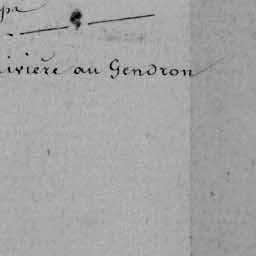 ivière au Gendron